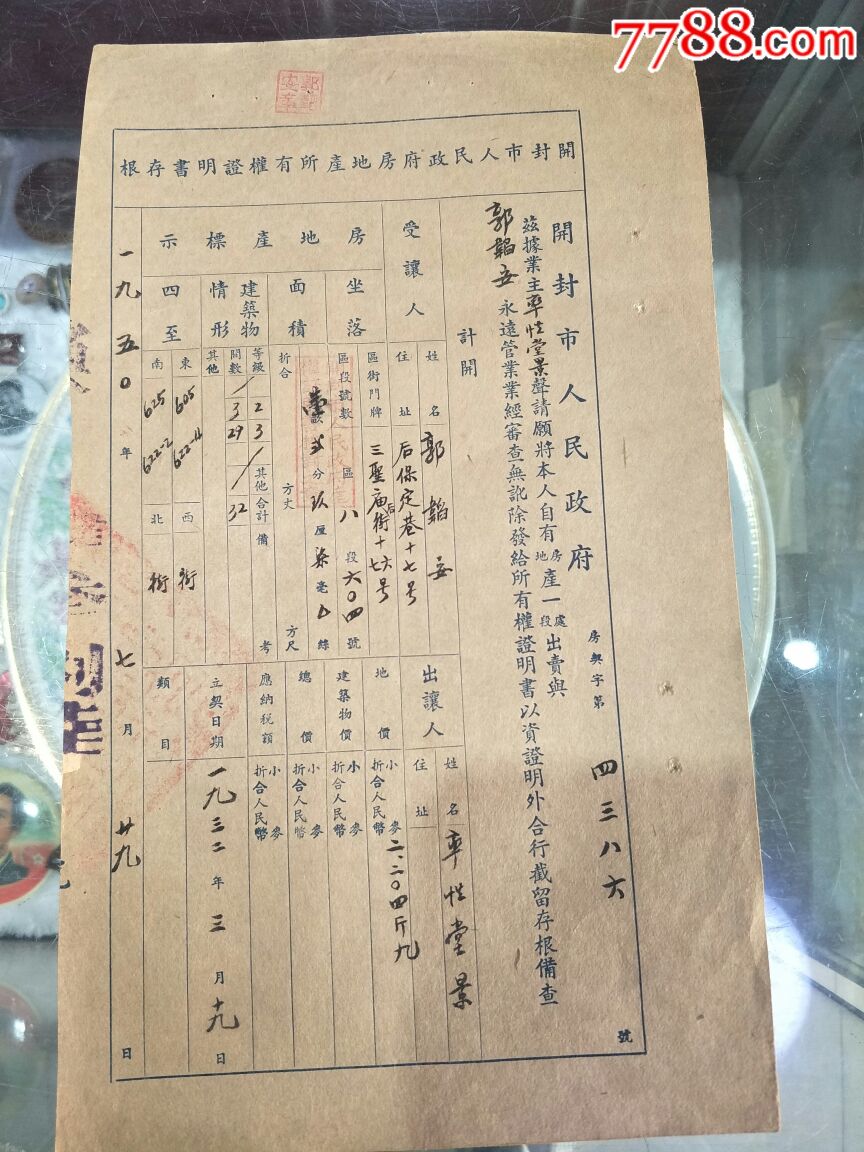 7788.com
開封市人民政府房地產所有權證明書存根
開封市人民政府
房契字第四三八六號
茲據業主率性堂景聲請願將本人自有房地產一處段出賣與
郭韜安永遠管業業經審查無訛除發給所有權證明書以資證明外合行截留存根備查
計開
受讓人
姓名 郭韜安
住址 后保定巷十七號
出讓人
姓名 率性堂景
住址
房地產標示
坐落
區街門牌 三聖庙后街十六七號
區段號數 區八段六〇四號
面積
畝弍分玖厘柒毫 絲
折合 方丈 方尺
建築物情形
等級 2 3 其他合計
間數 3 29 32
其他
備考
四至
東 605 622-11
西 街
南 625 622-2
北 街
地價 小麥 二、二〇四斤九
折合人民幣
建築物價 小麥
折合人民幣
總價 小麥
折合人民幣
應納稅額 小麥
折合人民幣
立契日期 一九三二年三月十九日
類目
一九五〇年七月廿九日